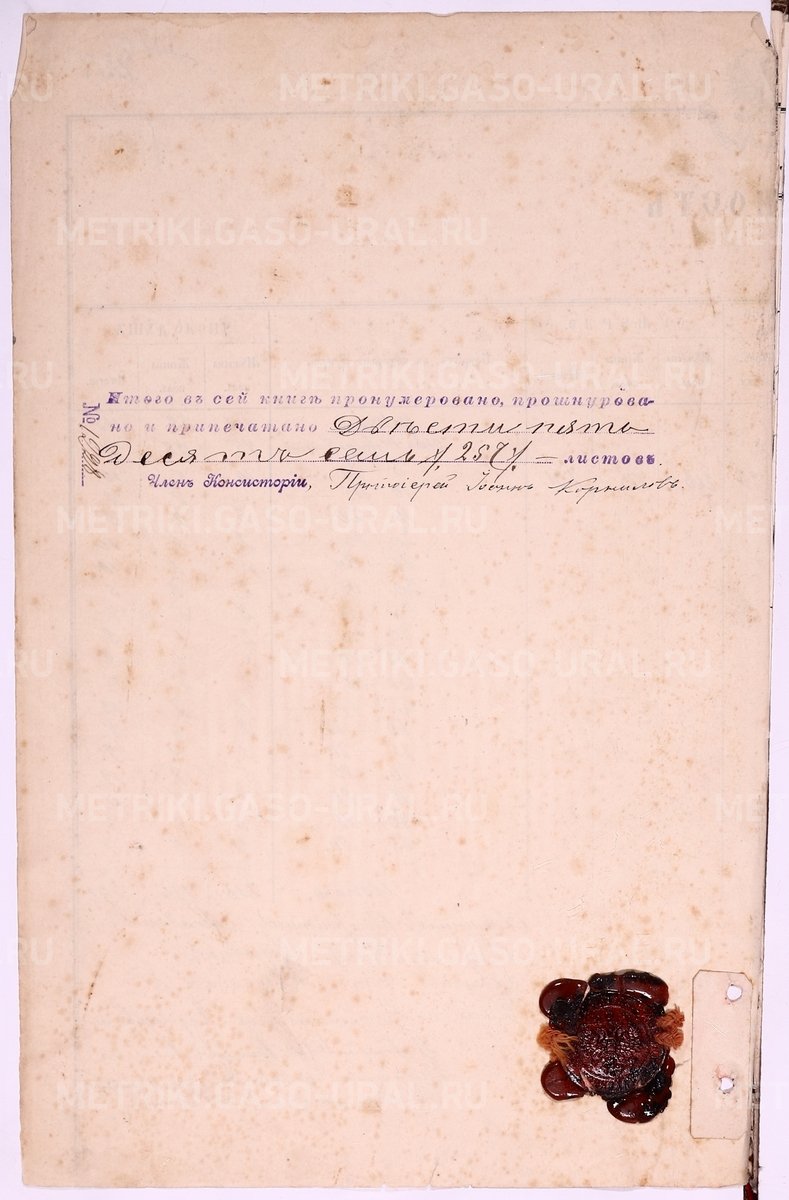 METRIKI.GASO-URAL.RU
METRIKI.GASO-URAL.RU
Итого въ сей книгѣ пронумеровано, прошнурова-
но и припечатано Двѣсти пять
десятъ семь /257/ – листовъ.
Членъ Консисторіи, Протоіерей Іоаннъ Корниловъ.
№
METRIKI.GASO-URAL.RU
METRIKI.GASO-URAL.RU
METRIKI.GASO-URAL.RU
METRIKI.GASO-URAL.RU
METRIKI.GASO-URAL.RU